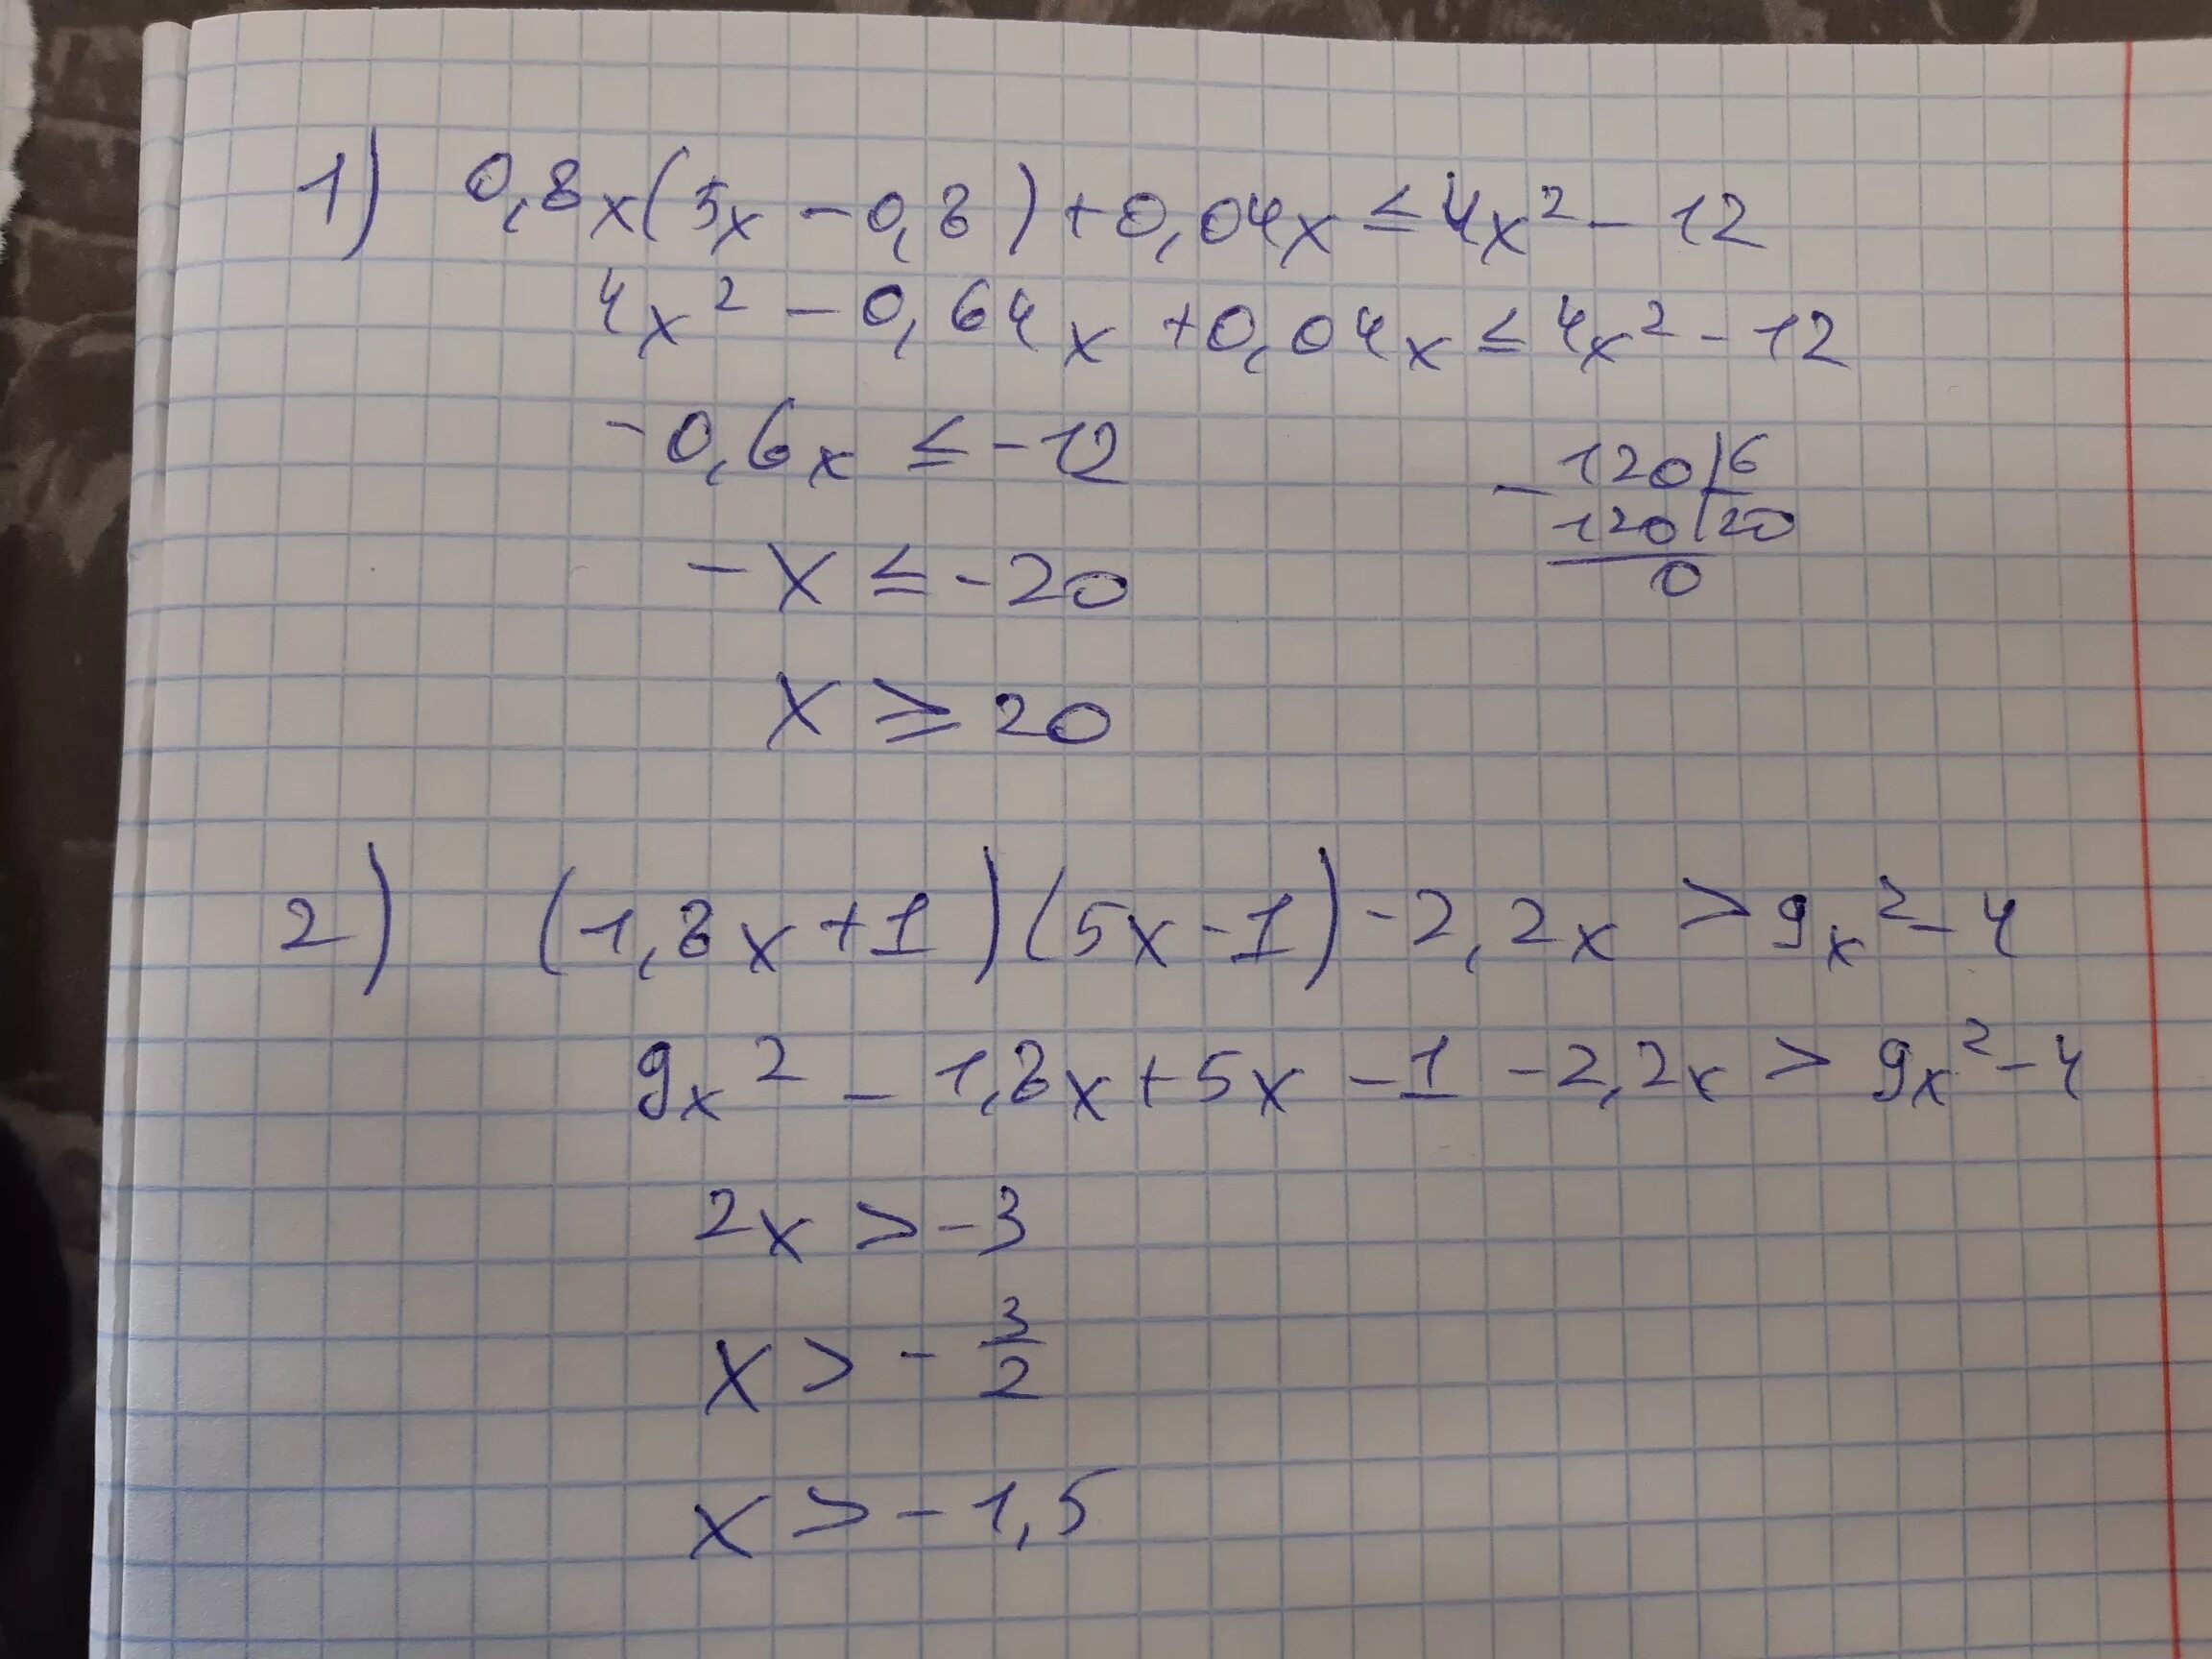 1) 0,8x(5x-0,8)+0,04x≤4x²-12
4x²-0,64x+0,04x≤4x²-12
-0,6x≤-12
-x≤-20
x≥20
-120|6
120|20
0
2) (1,8x+1)(5x-1)-2,2x>9x²-4
9x²-1,8x+5x-1-2,2x>9x²-4
2x>-3
x>-3/2
x>-1,5